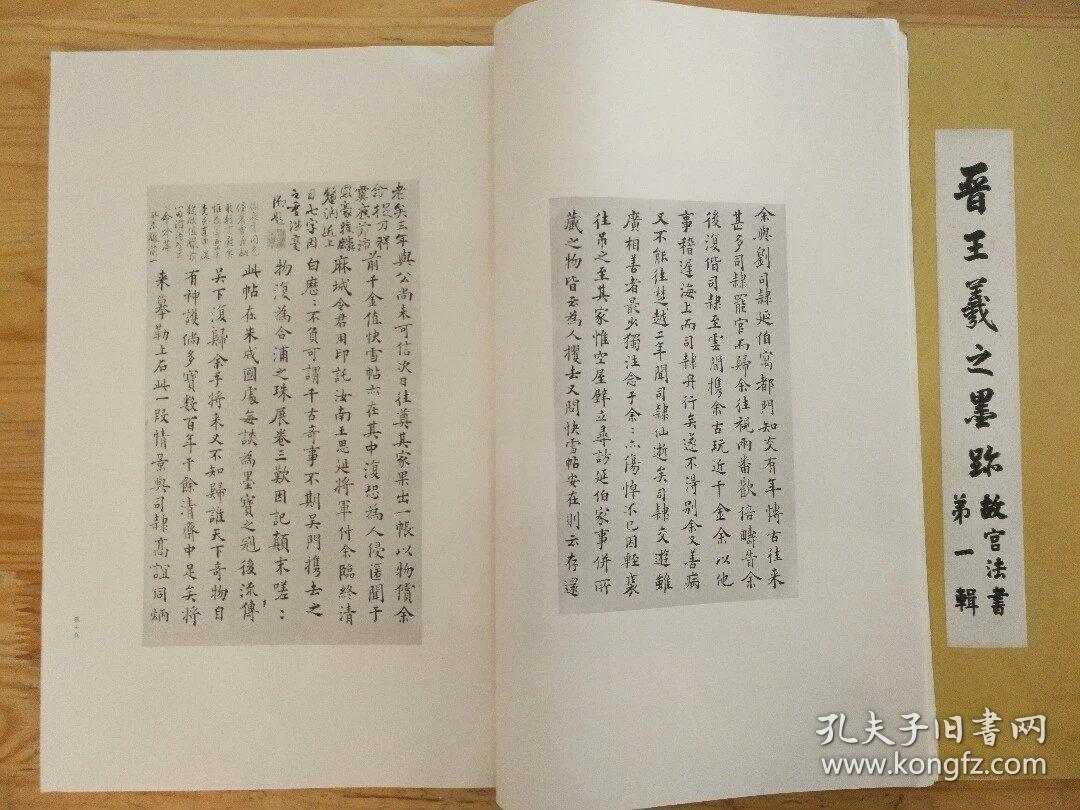 晋王羲之墨跡
故宮法書
第一輯
余與劉司隸延伯寓都門知交有年博古往來
甚多司隸罷官而歸余往視兩番歡倍疇昔余
後復偕司隸至雲間携余古玩近千金余以他
事稽遲海上而司隸舟行矣遂不得別余又善病
又不能往楚越二年聞司隸仙逝矣司隸交遊雖
廣相善者最少獨注念于余：亦傷悼不已因輕裝
往吊之至其家惟空屋壁立尋訪延伯家事併所
藏之物皆云為人攫去又問快雪帖安在則云存還
與公尚未可信次日往奠其家果出一帳以物償余
前千金值快雪帖亦在其中復恐為人侵匿聞于
麻城令君用印託汝南王思延將軍付余臨終清
白歷：不負可謂千古奇事不期吳門携去之
物復為合浦之珠展卷三歎因記顛末嗟：
此帖在朱成國處每談為墨寶之冠後流傳
吳下復歸余手將來又不知歸誰天下奇物自
有神護倘多寶數百年于余清齋中足矣將
来摹勒上石此一段情景與司隸高誼同炳
老矣三年
孔夫子旧书网
www.kongfz.com